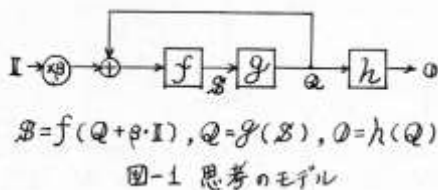 𝕀 ×β + f 𝕊 g ℚ h 𝕆
𝕊=f(ℚ+β·𝕀), ℚ=g(𝕊), 𝕆=h(ℚ)
図-1 思考のモデル